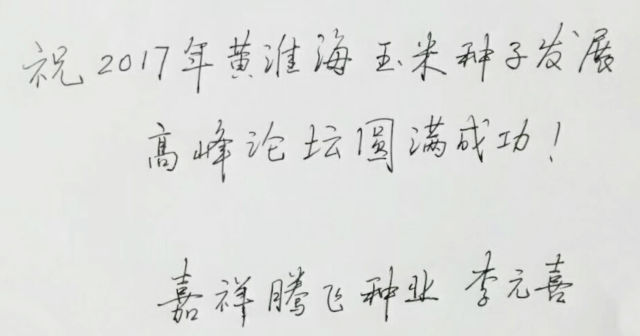 祝2017年黄淮海玉米种子发展
高峰论坛圆满成功！
嘉祥腾飞种业 李元喜